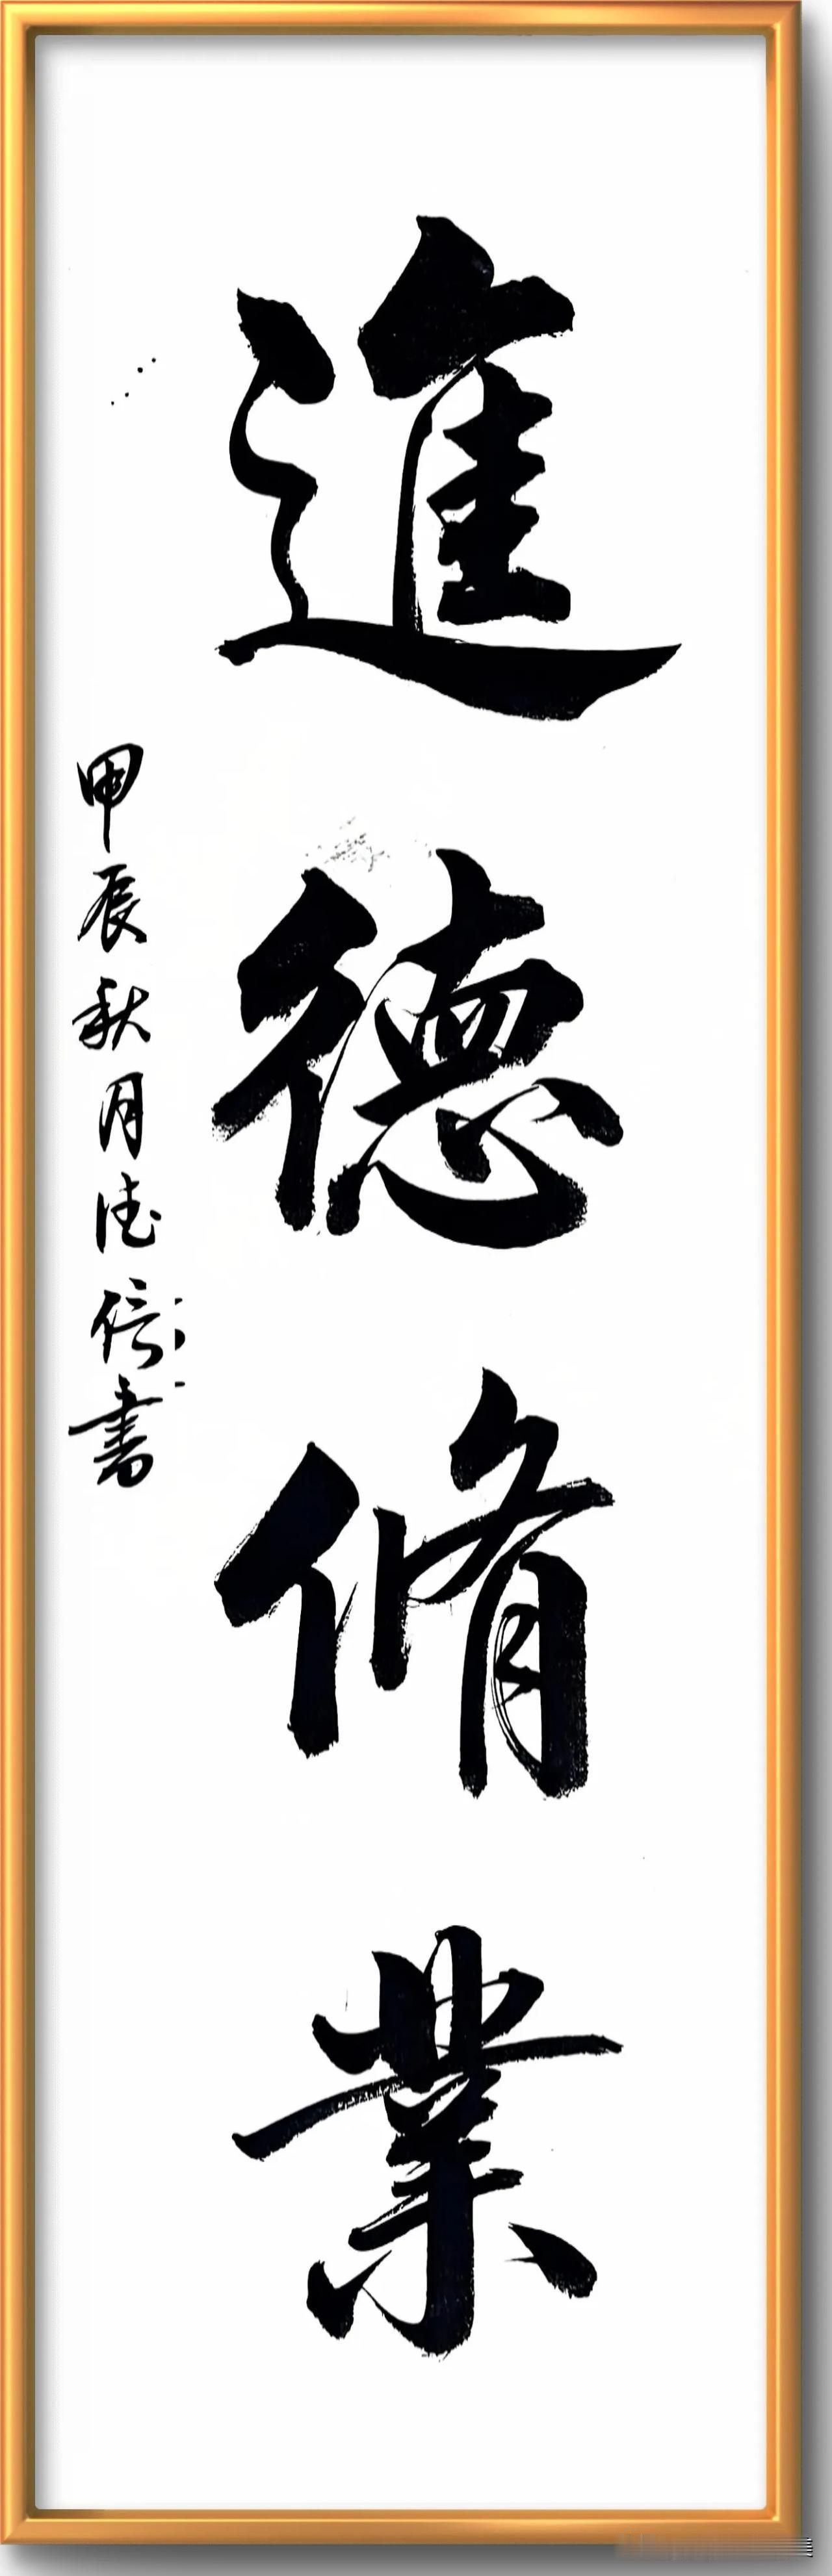 進德脩業
甲辰秋月德俊書